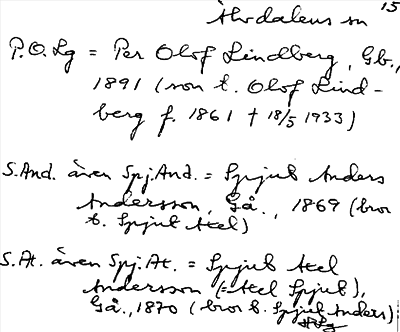 Älvdalens sn 15
P.O.Lg = Per Olof Lindberg, Gb.,
1891 (son t. Olof Lind-
berg f. 1861 † 18/5 1933)
S.And. även Spj.And. = Spjut Anders
Andersson, Gå., 1869 (bror
t. Spjut Axel)
S.At. även Spj.At. = Spjut Axel
Andersson (=Axel Spjut),
Gå., 1870 (bror t. Spjut Anders)